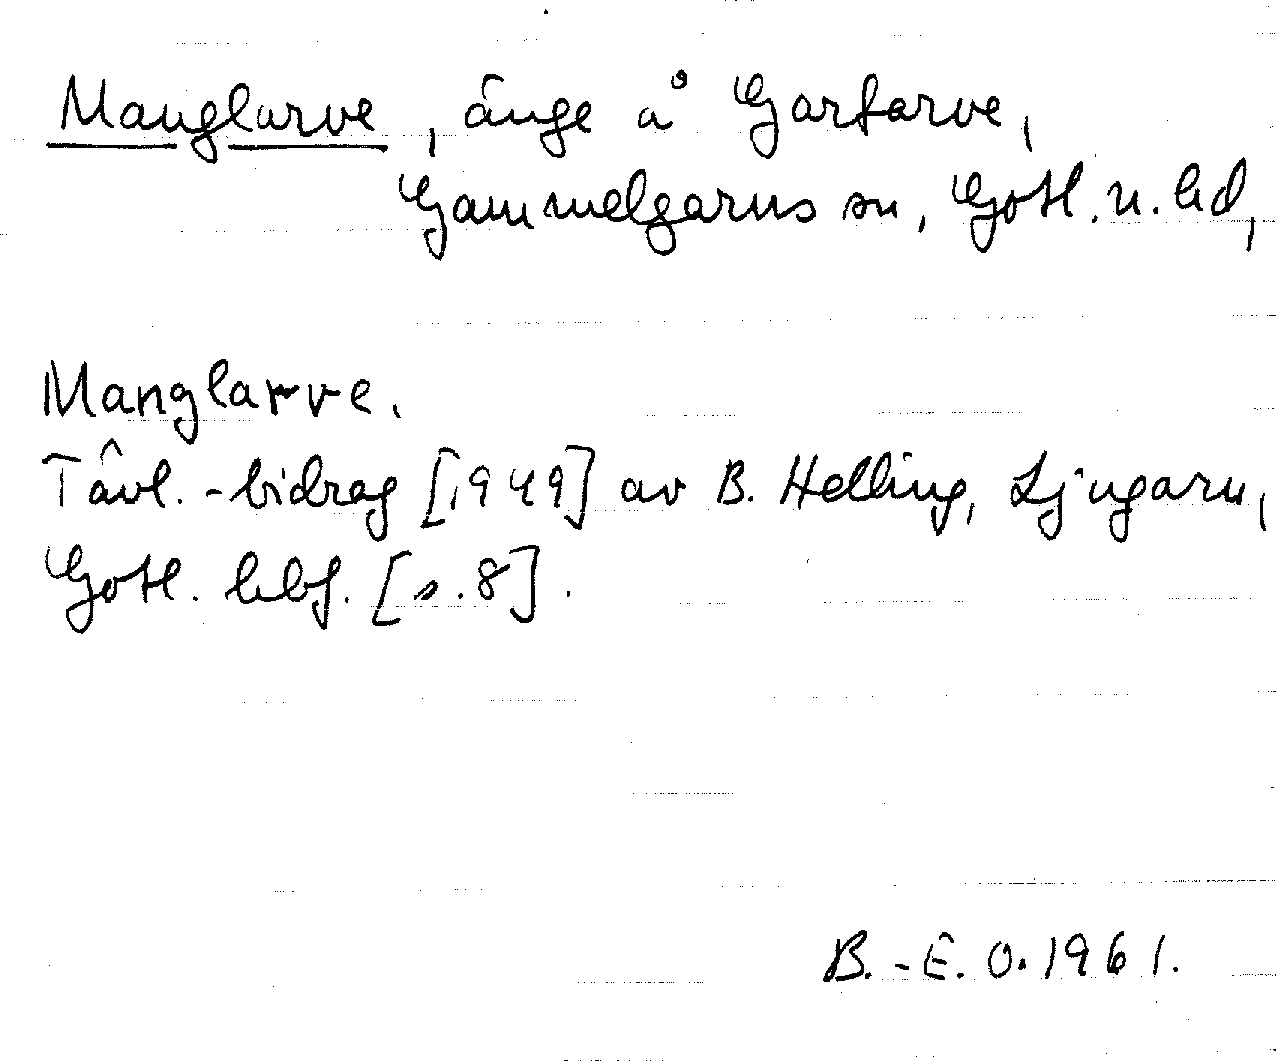 Manglarve, änge å Gartarve,
Gammelgarns sn, Gotl. n. hd,
Manglarve.
Tävl.-bidrag [1949] av B. Helling, Ljugarn,
Gotl. hbf. [s.8].
B.-E. O. 1961.